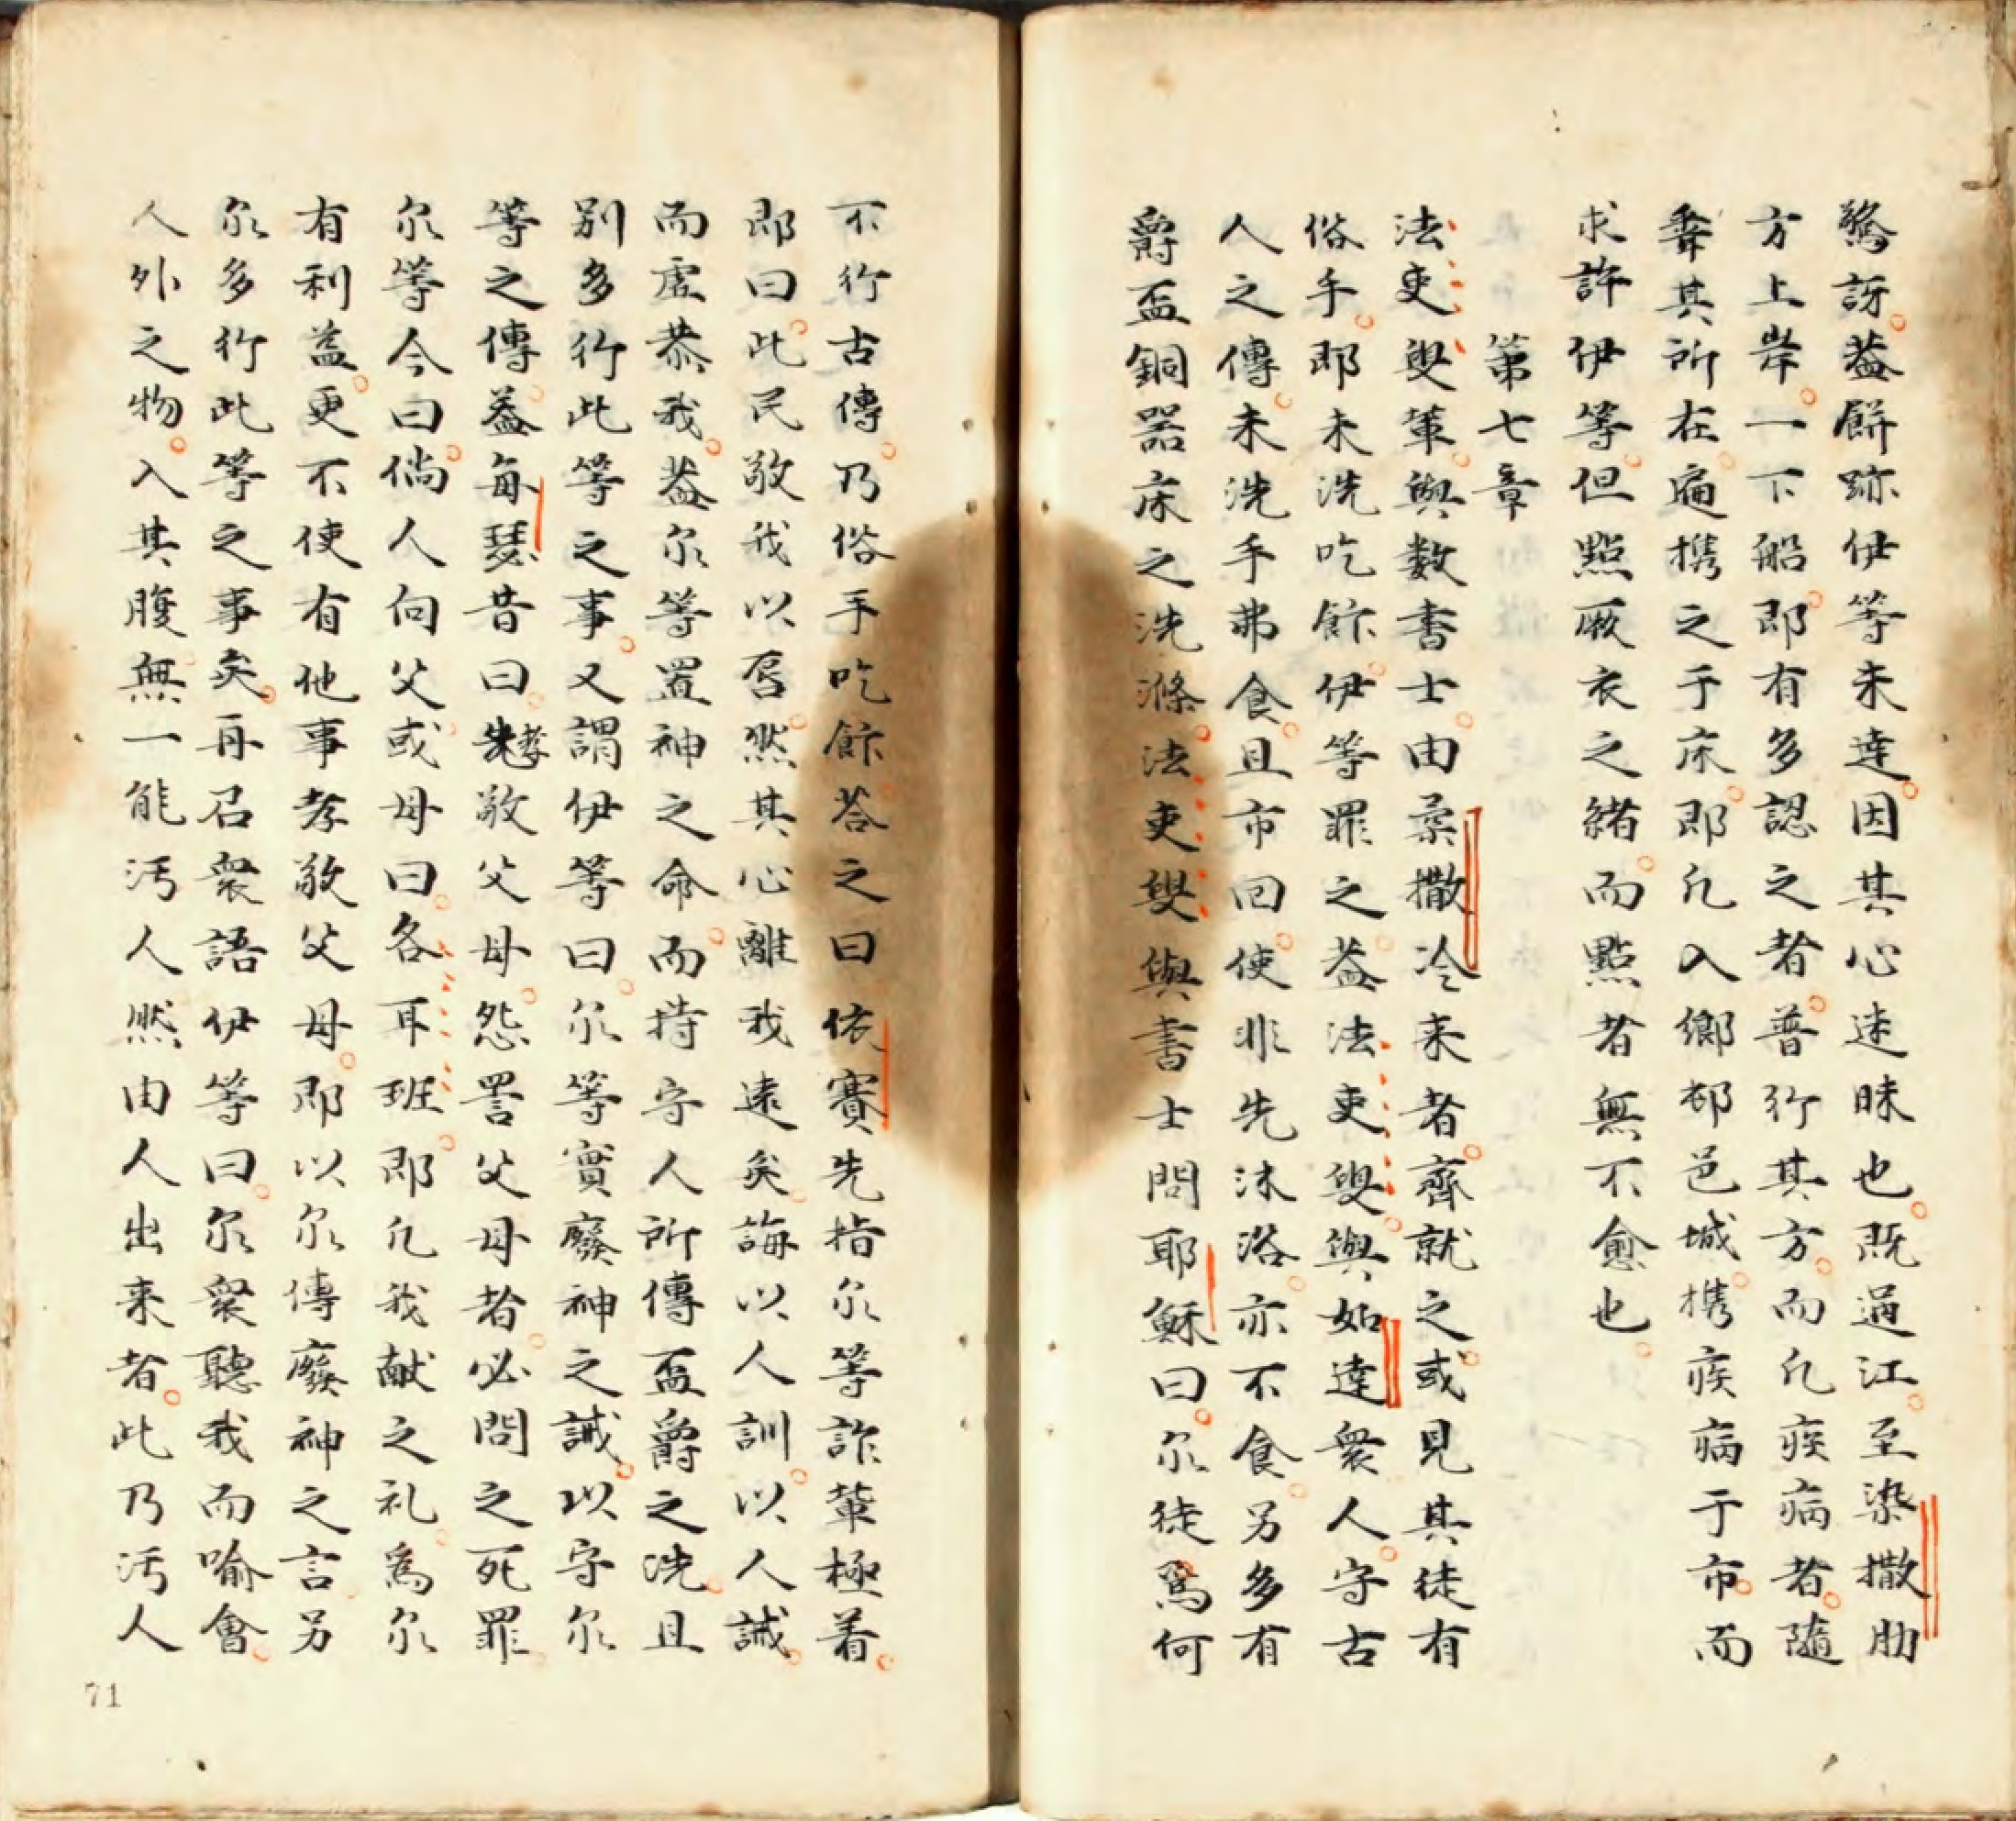 驚訝蓋餅跡伊等未達因其心迷昧也既過江至染撒肋
方上岸一下船即有多認之者普行其方而凢疾病者隨
聞其所在遍携之于床即凢入鄉邨邑城携疾病于市而
求許伊等但點厥衣之緒而點者無不愈也
第七章
法吏叟軰與数書士由柔撒冷来者齊就之或見其徒有
俗手即未洗吃飰伊等罪之蓋法吏叟與如達衆人守古
人之傳未洗手弗食且市回使非先沐浴亦不食另多有
爵盃銅器床之洗滌法吏叟與書士問耶穌曰尔徒為何
不行古傳乃俗手吃飰荅之曰依賽先指尔等詐軰極着
即曰此民敬我以唇然其心離我遠矣誨以人訓以人誡
而虛恭我蓋尔等置神之命而持守人所傳盃爵之洗且
别多行此等之事又謂伊等曰尔等實廢神之誡以守尔
等之傳蓋每瑟昔曰孝敬父母怨詈父母者必問之死罪
尔等今曰倘人向父或母曰各耳班即凢我献之礼為尔
有利益更不使有他事孝敬父母即以尔傳廢神之言另
尔多行此等之事矣再召衆語伊等曰尔衆聽我而喻會
人外之物入其腹無一能汚人然由人出来者此乃汚人
71